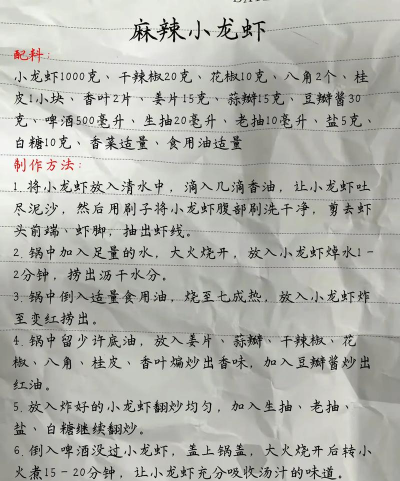 麻辣小龙虾
配料:
小龙虾1000克、干辣椒20克、花椒10克、八角2个、桂
皮1小块、香叶2片、姜片15克、蒜瓣15克、豆瓣酱30
克、啤酒500毫升、生抽20毫升、老抽10毫升、盐5克、
白糖10克、香菜适量、食用油适量
制作方法:
1. 将小龙虾放入清水中，滴入几滴香油，让小龙虾吐
尽泥沙，然后用刷子将小龙虾腹部刷洗干净，剪去虾
头前端、虾脚，抽出虾线。
2. 锅中加入足量的水，大火烧开，放入小龙虾焯水1-
2分钟，捞出沥干水分。
3. 锅中倒入适量食用油，烧至七成热，放入小龙虾炸
至变红捞出。
4. 锅中留少许底油，放入姜片、蒜瓣、干辣椒、花
椒、八角、桂皮、香叶煸炒出香味，加入豆瓣酱炒出
红油。
5. 放入炸好的小龙虾翻炒均匀，加入生抽、老抽、
盐、白糖继续翻炒。
6. 倒入啤酒没过小龙虾，盖上锅盖，大火烧开后转小
火煮15-20分钟，让小龙虾充分吸收汤汁的味道。